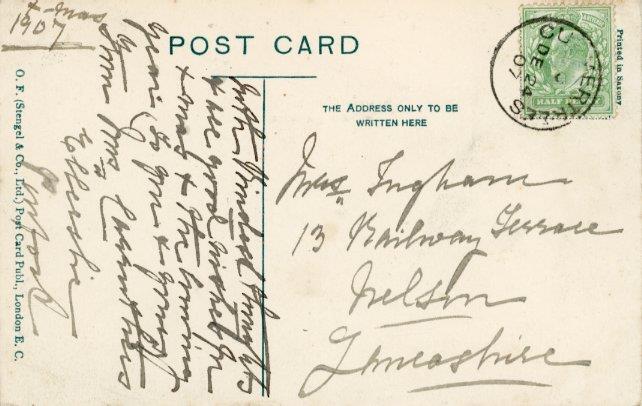 X-mas
1907
POST CARD
THE ADDRESS ONLY TO BE
WRITTEN HERE
Printed in Saxony.
HALF
DE 24
07
Mrs Ingham
13 Railway Terrace
Nelson
Lancashire
With kindest thoughts
& all good wishes for
X-mas & the coming
year to you & yours
from Mrs
O. F. (Stengel & Co., Ltd.) Post Card Publ., London E. C.